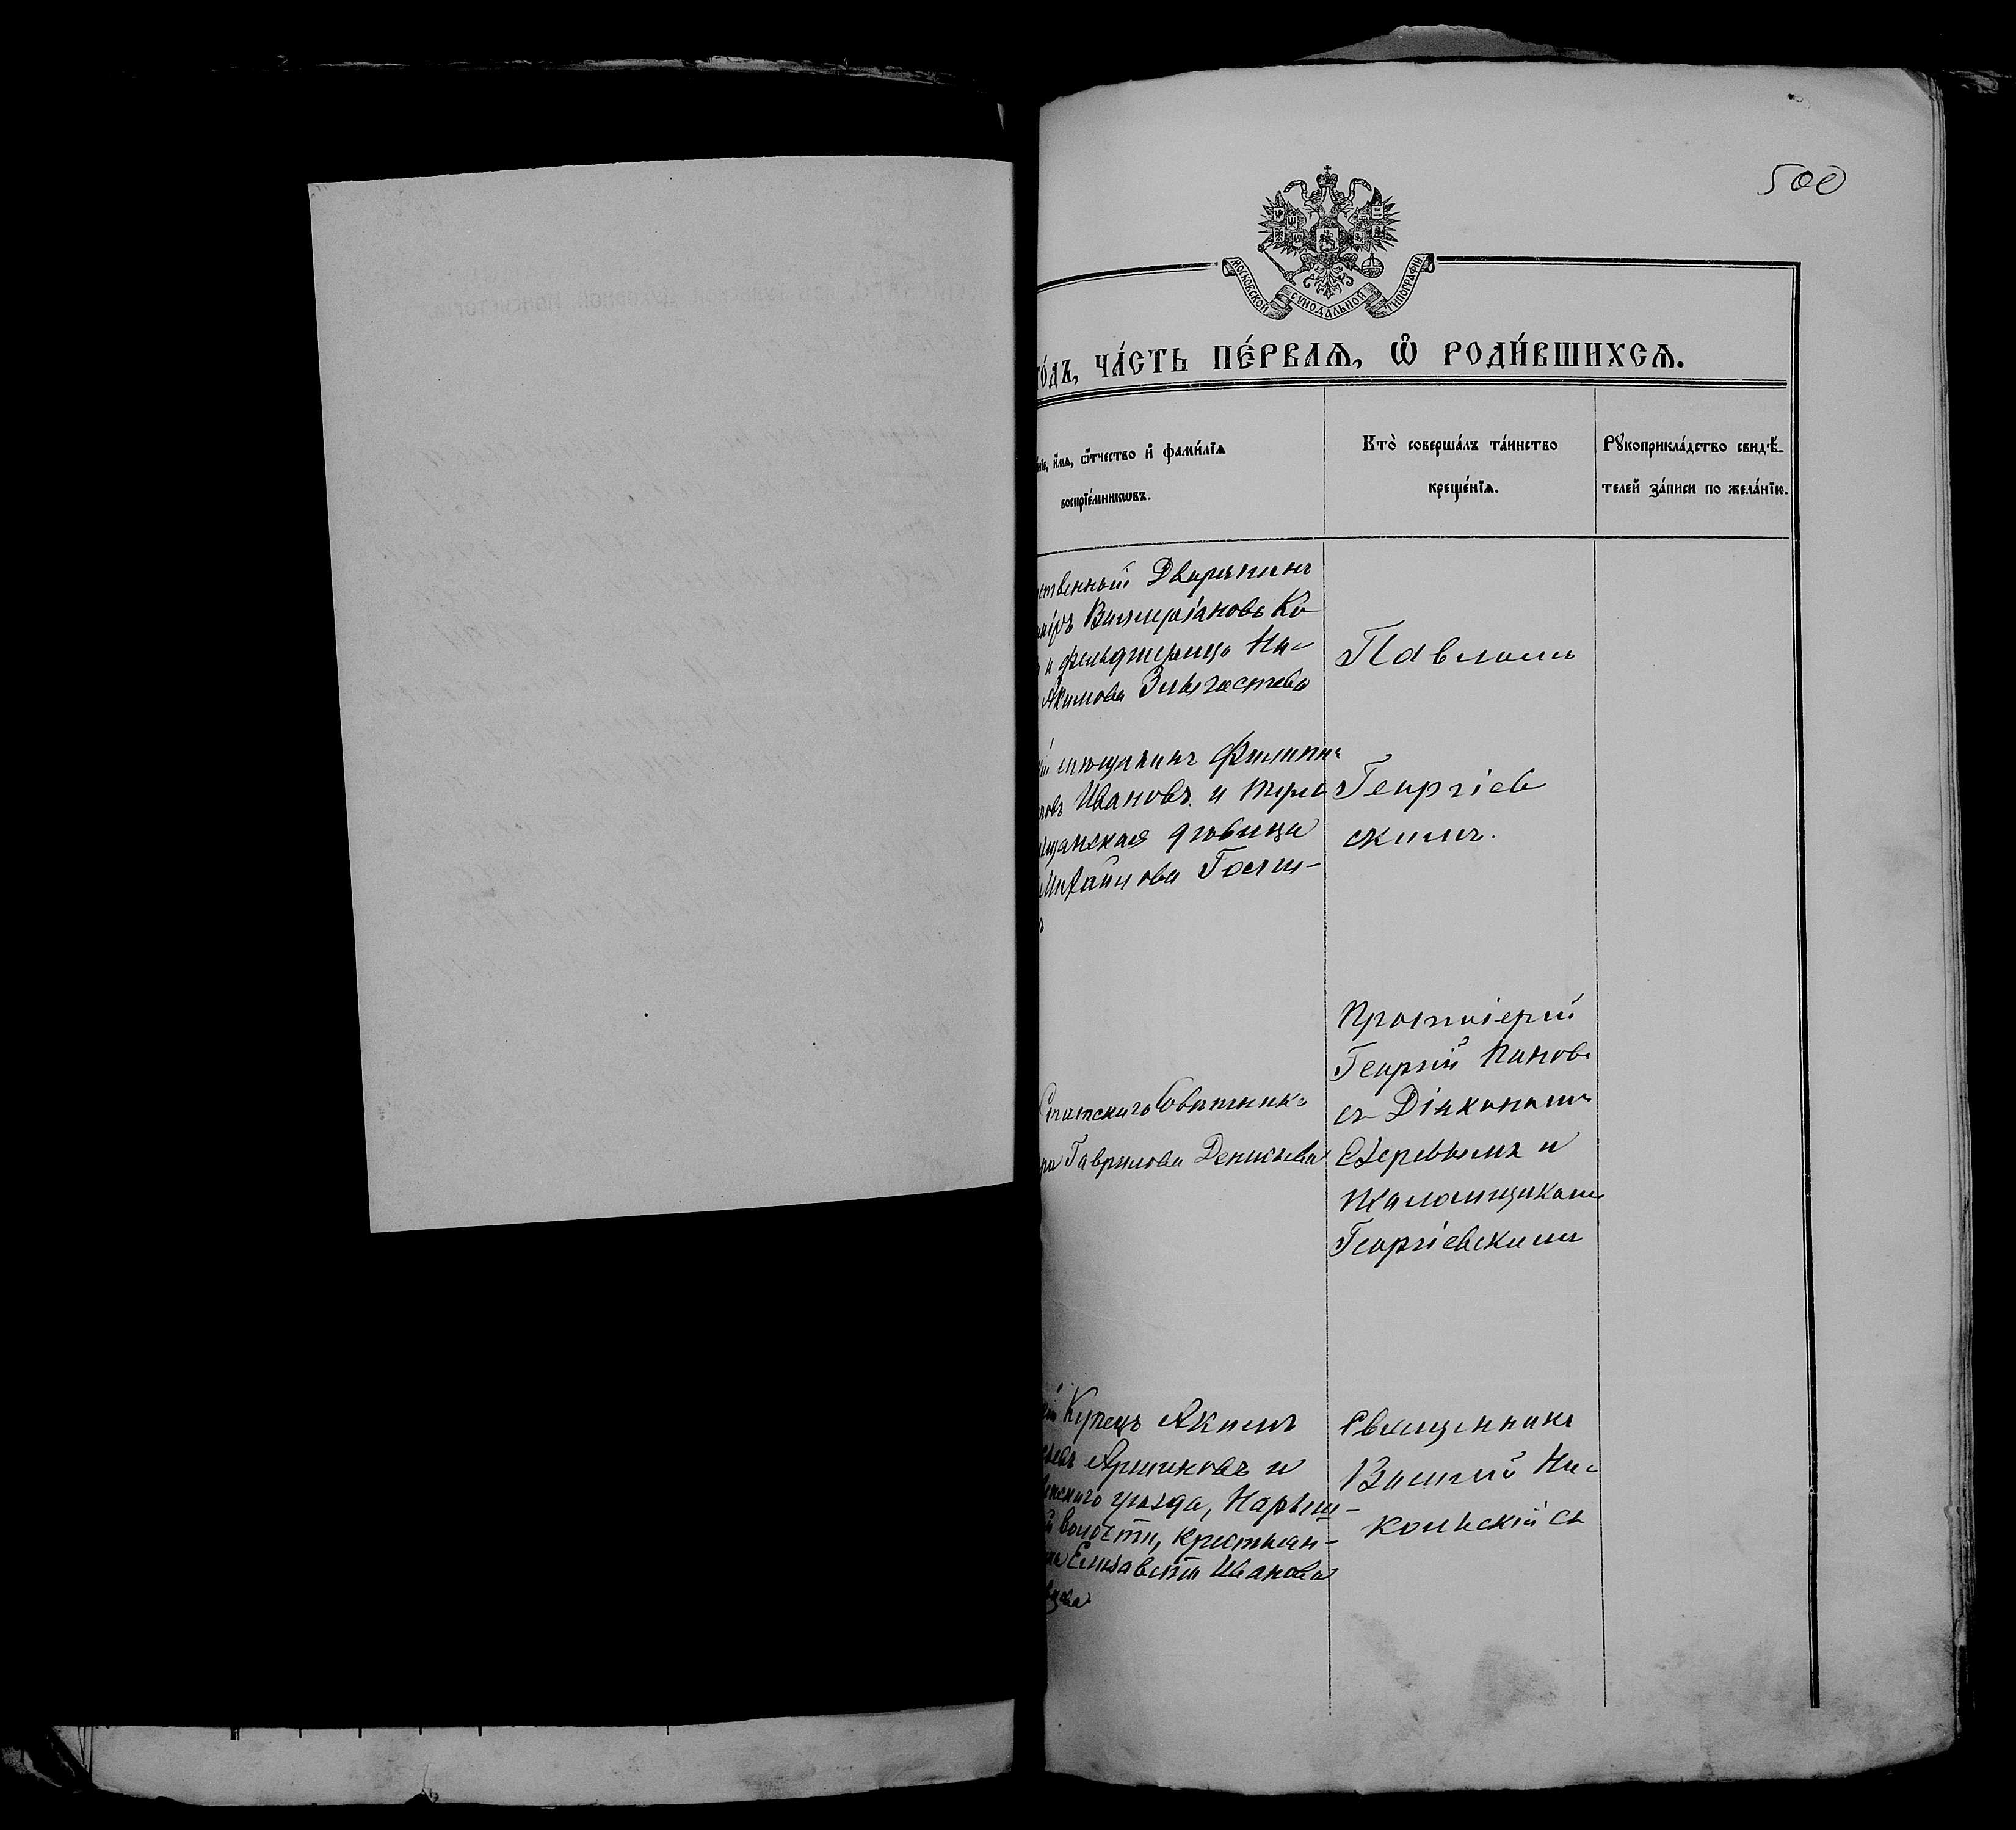 500
МОСКОВСКОЙ СѴНОДАЛЬНОЙ ТИПОГРАФІИ
го́дъ, ча́сть пе́рваѧ, ѡ҆ роди́вшихсѧ.
и҆́мѧ, ѻ҆́тчество и҆ фами́лїѧ
воспрїе́мникѡвъ.
Кто̀ соверша́лъ та́инство
креще́нїѧ.
Рꙋкоприкла́дство свидѣ́-
телей за́писи по жела́нїю.
ственный Дворянинъ
Валерiановъ Ко
и фельдшерица На-
Акимова
Павломъ
мѣщанинъ Филиппъ
Ивановъ и
щанская дѣвица
Михайлова
Георгiев
скимъ.
Статскаго Совѣтника
Гаврилова Денисьева
Протоіерей
Георгій Пановъ
съ Діакономъ
и
Псаломщикомъ
Георгіевскимъ
Купецъ Акимъ
Аршиновъ и
скаго уѣзда, Нарыш-
волости, крестьян-
Елизавета Иванова
Священникъ
Василій Ни-
кольскій съ